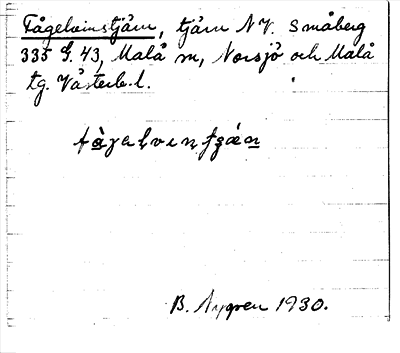 Fågelvinstjärn, tjärn N.V. Småberg
335 G. 43, Malå sn, Norsjö och Malå
tg. Västerb. l.
B. Nygren 1930.